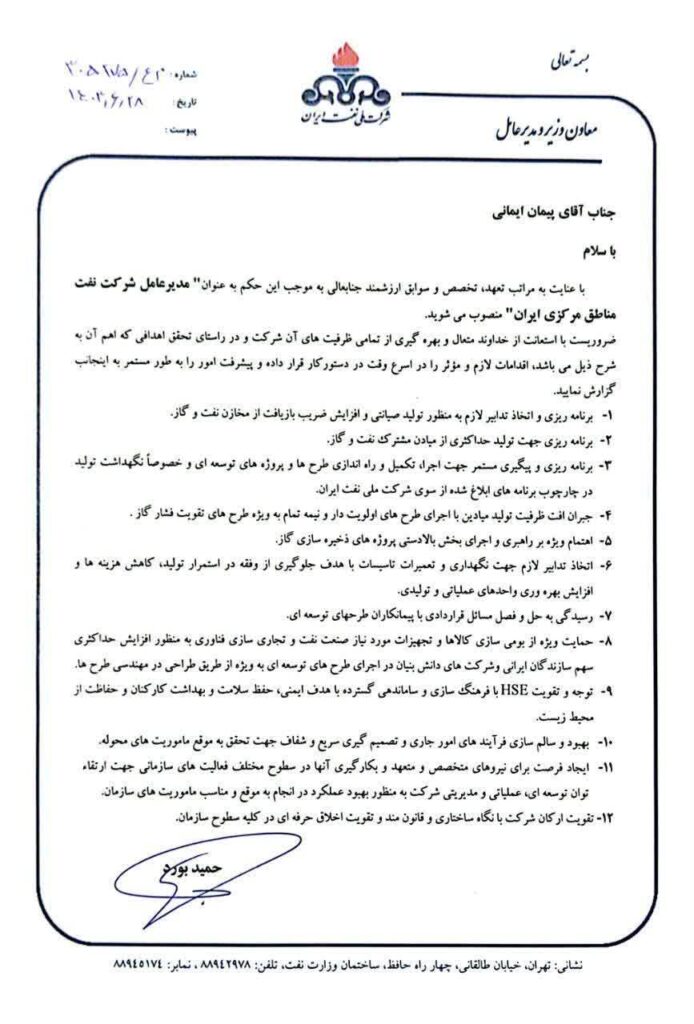 بسمه تعالی
معاون وزیر و مدیرعامل
شرکت ملی نفت ایران
شماره :
تاریخ : ۱۴۰۳,۶,۲۸
پیوست :
جناب آقای پیمان ایمانی
با سلام
با عنایت به مراتب تعهد، تخصص و سوابق ارزشمند جنابعالی به موجب این حکم به عنوان" مدیرعامل شرکت نفت
مناطق مرکزی ایران" منصوب می شوید.
ضروریست با استعانت از خداوند متعال و بهره گیری از تمامی ظرفیت های آن شرکت و در راستای تحقق اهدافی که اهم آن به
شرح ذیل می باشد، اقدامات لازم و مؤثر را در اسرع وقت در دستورکار قرار داده و پیشرفت امور را به طور مستمر به اینجانب
گزارش نمایید.
۱- برنامه ریزی و اتخاذ تدابیر لازم به منظور تولید صیانتی و افزایش ضریب بازیافت از مخازن نفت و گاز.
۲- برنامه ریزی جهت تولید حداکثری از میادن مشترک نفت و گاز.
۳- برنامه ریزی و پیگیری مستمر جهت اجرا، تکمیل و راه اندازی طرح ها و پروژه های توسعه ای و خصوصاً نگهداشت تولید
در چارچوب برنامه های ابلاغ شده از سوی شرکت ملی نفت ایران.
۴- جبران افت ظرفیت تولید میادین با اجرای طرح های اولویت دار و نیمه تمام به ویژه طرح های تقویت فشار گاز .
۵- اهتمام ویژه بر راهبری و اجرای بخش بالادستی پروژه های ذخیره سازی گاز.
۶- اتخاذ تدابیر لازم جهت نگهداری و تعمیرات تاسیسات با هدف جلوگیری از وقفه در استمرار تولید، کاهش هزینه ها و
افزایش بهره وری واحدهای عملیاتی و تولیدی.
۷- رسیدگی به حل و فصل مسائل قراردادی با پیمانکاران طرحهای توسعه ای.
۸- حمایت ویژه از بومی سازی کالاها و تجهیزات مورد نیاز صنعت نفت و تجاری سازی فناوری به منظور افزایش حداکثری
سهم سازندگان ایرانی وشرکت های دانش بنیان در اجرای طرح های توسعه ای به ویژه از طریق طراحی در مهندسی طرح ها.
۹- توجه و تقویت HSE با فرهنگ سازی و ساماندهی گسترده با هدف ایمنی، حفظ سلامت و بهداشت کارکنان و حفاظت از
محیط زیست.
۱۰- بهبود و سالم سازی فرآیند های امور جاری و تصمیم گیری سریع و شفاف جهت تحقق به موقع ماموریت های محوله.
۱۱- ایجاد فرصت برای نیروهای متخصص و متعهد و بکارگیری آنها در سطوح مختلف فعالیت های سازمانی جهت ارتقاء
توان توسعه ای، عملیاتی و مدیریتی شرکت به منظور بهبود عملکرد در انجام به موقع و مناسب ماموریت های سازمان.
۱۲- تقویت ارکان شرکت با نگاه ساختاری و قانون مند و تقویت اخلاق حرفه ای در کلیه سطوح سازمان.
حمید بورد
نشانی: تهران، خیابان طالقانی، چهار راه حافظ، ساختمان وزارت نفت، تلفن: ۸۸۹۴۲۹۷۸ ، نمابر: ۸۸۹۴۵۱۷۴